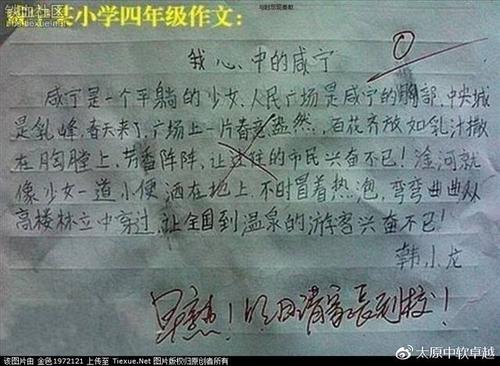 铁血社区
bbs.tiexue.net
与时尽同喜欲
某小学四年级作文：
0
我心中的咸宁
咸宁是一个平躺的少女，人民广场是咸宁的胸部，中央城
是乳峰，春天来了，广场上一片春意盎然，百花齐放如乳汁撒
在胸膛上，芳香阵阵，让过往的市民兴奋不已！淦河就
像少女一道小便洒在地上，不时冒着热泡，弯弯曲曲从
高楼林立中穿过，让全国到温泉的游客兴奋不已！
韩小龙
早熟！明日请家长到校！
该图片由 金色1972121 上传至 Tiexue.Net 图片版权归原创者所有
@太原中软卓越